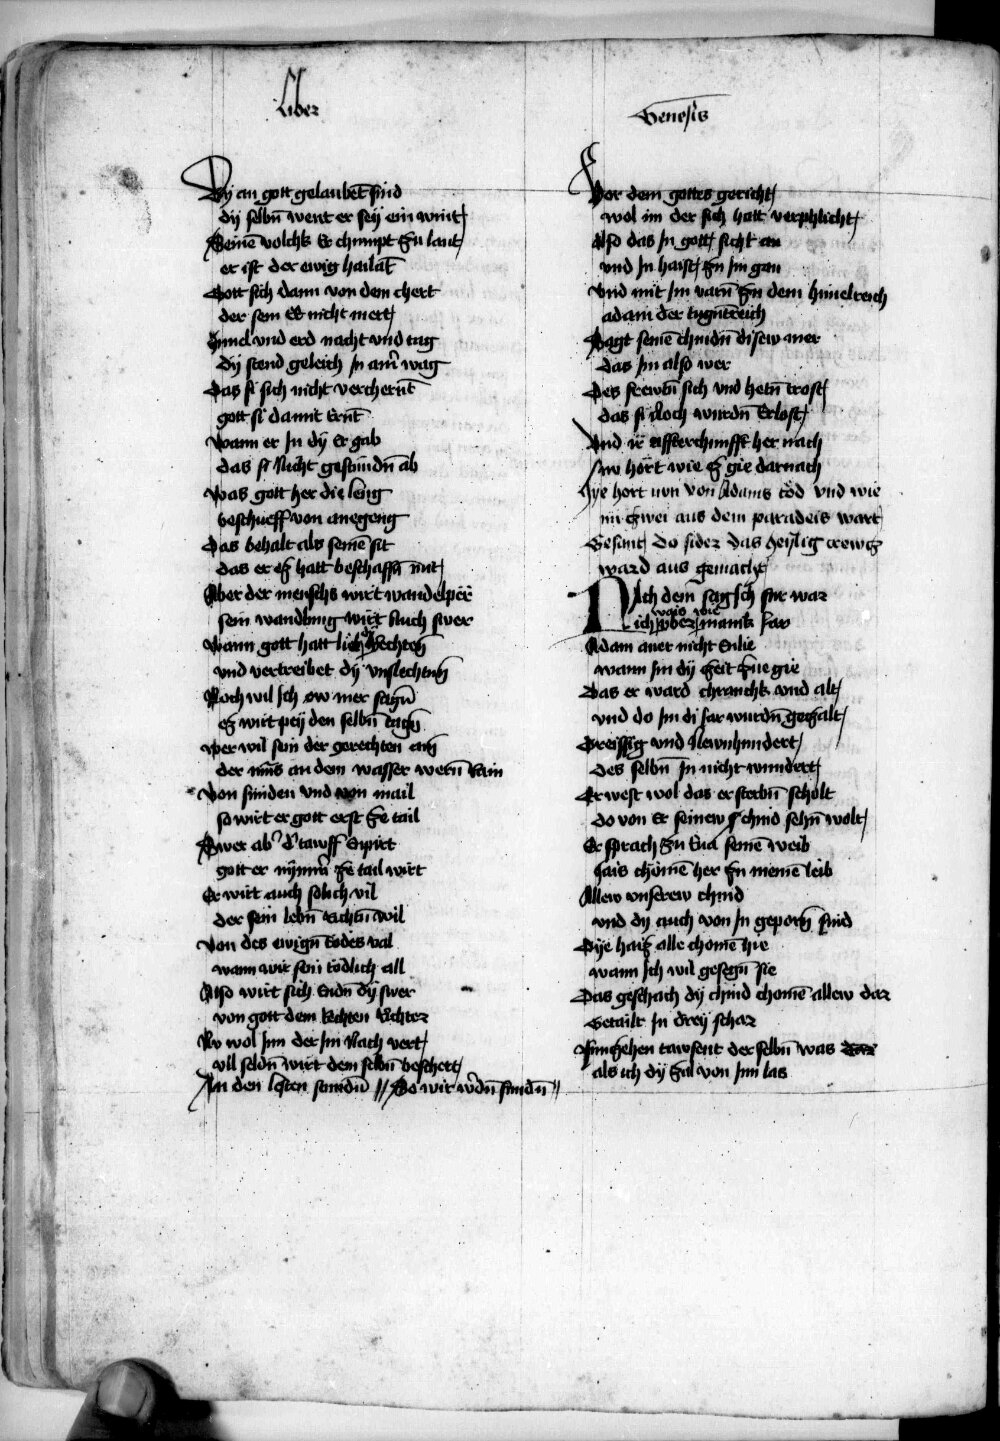 Liber
Genesis
Dy an gott gelaubet̄ sind
dy selbn̄ went er sey ein wint
Seinē volchk Er chumpt zu laut
er ist der ewig hailāt
Gott sich dann von dem chert
der sein Ee nicht mert
Himel vnd erd nacht vnd tag
dy stend geleich in am̄ wag
Das si sich nicht vercherūt
gott si damit Ernt̄
Wann er in dy Er gab
das si Nicht gestundn̄ ab
Was gott her die leng
beschueff von anegeng
Das behalt als seinē sit
das er ez hatt beschaffn̄ mit
Aber der mensch wirt wandelper
sein wandlung wirt Auch swer
Wann gott hatt lieb Rechten
vnd vertreibet dy vnslechten
Noch wil ich ew mer sagn̄
ez wirt pey den selbn̄ tagn̄
Wer wil sein der gerechten ain
der mus an dem wasser wern̄ Rain
Von sunden vnd von mail
so wirt er gott erst ze tail
Swer ab' d' tawff Enpirt
gott er nymm' ze tail wirt
Er wirt auch solich vil
der sein lebn̄ Richtn̄ wil
Von des ewign̄ todes val
wann wir sein tödlich all
Also wirt sich Endn̄ dy swer
von gott dem Rechten Richter
Nv wol Im der im Nach vert
vil seldn̄ wirt dem selbn̄ beschert
An den lesten stundn̄ // So wir w'dn̄ fundn̄ //
Vor dem gottes gericht
wol im der sich hatt verphlicht
Also das in gott sicht an
vnd in haist zu im gan
Vnd mit im varn̄ zu dem himelreich
adam der tugntreich
Sagt seinē chindn̄ disew mer
das im also wer
Des frewtn̄ sich vnd hetn̄ trost
das si Noch wurdn̄ Erlost
Vnd ir affterchunfft her nach
Nw hört wie Ez gie darnach
Hye hort nvn von Adams töd vnd wie
im zwei aus dem paradeis wart
Gesant do sider das heylig crewcz
ward aus gemacht
Nach dem sag ich fur war
wais wie
ich vber manik Jar
Adam auer nicht Enlie
wann im dy zeit zue gie
Das er ward chranchk vnd alt
vnd do im di Jar wurdn̄ gezalt
Dreissig vnd Newnhundert
des selbn̄ in nicht wundert
Er west wol das er sterbn̄ scholt
do von Er seinew chind sehn̄ wolt
Er sprach zu Eua seinē weib
hais chömē her zu meinē leib
Allew vnserew chind
vnd dy auch von in geporn̄ sind
Dye haiz alle chomē hie
wann ich wil gesegn̄ sie
Das geschach dy chind chomē allew dar
Getailt in drey schar
Funfzehen tawsent der selbn̄ was
als ich dy zal von im las